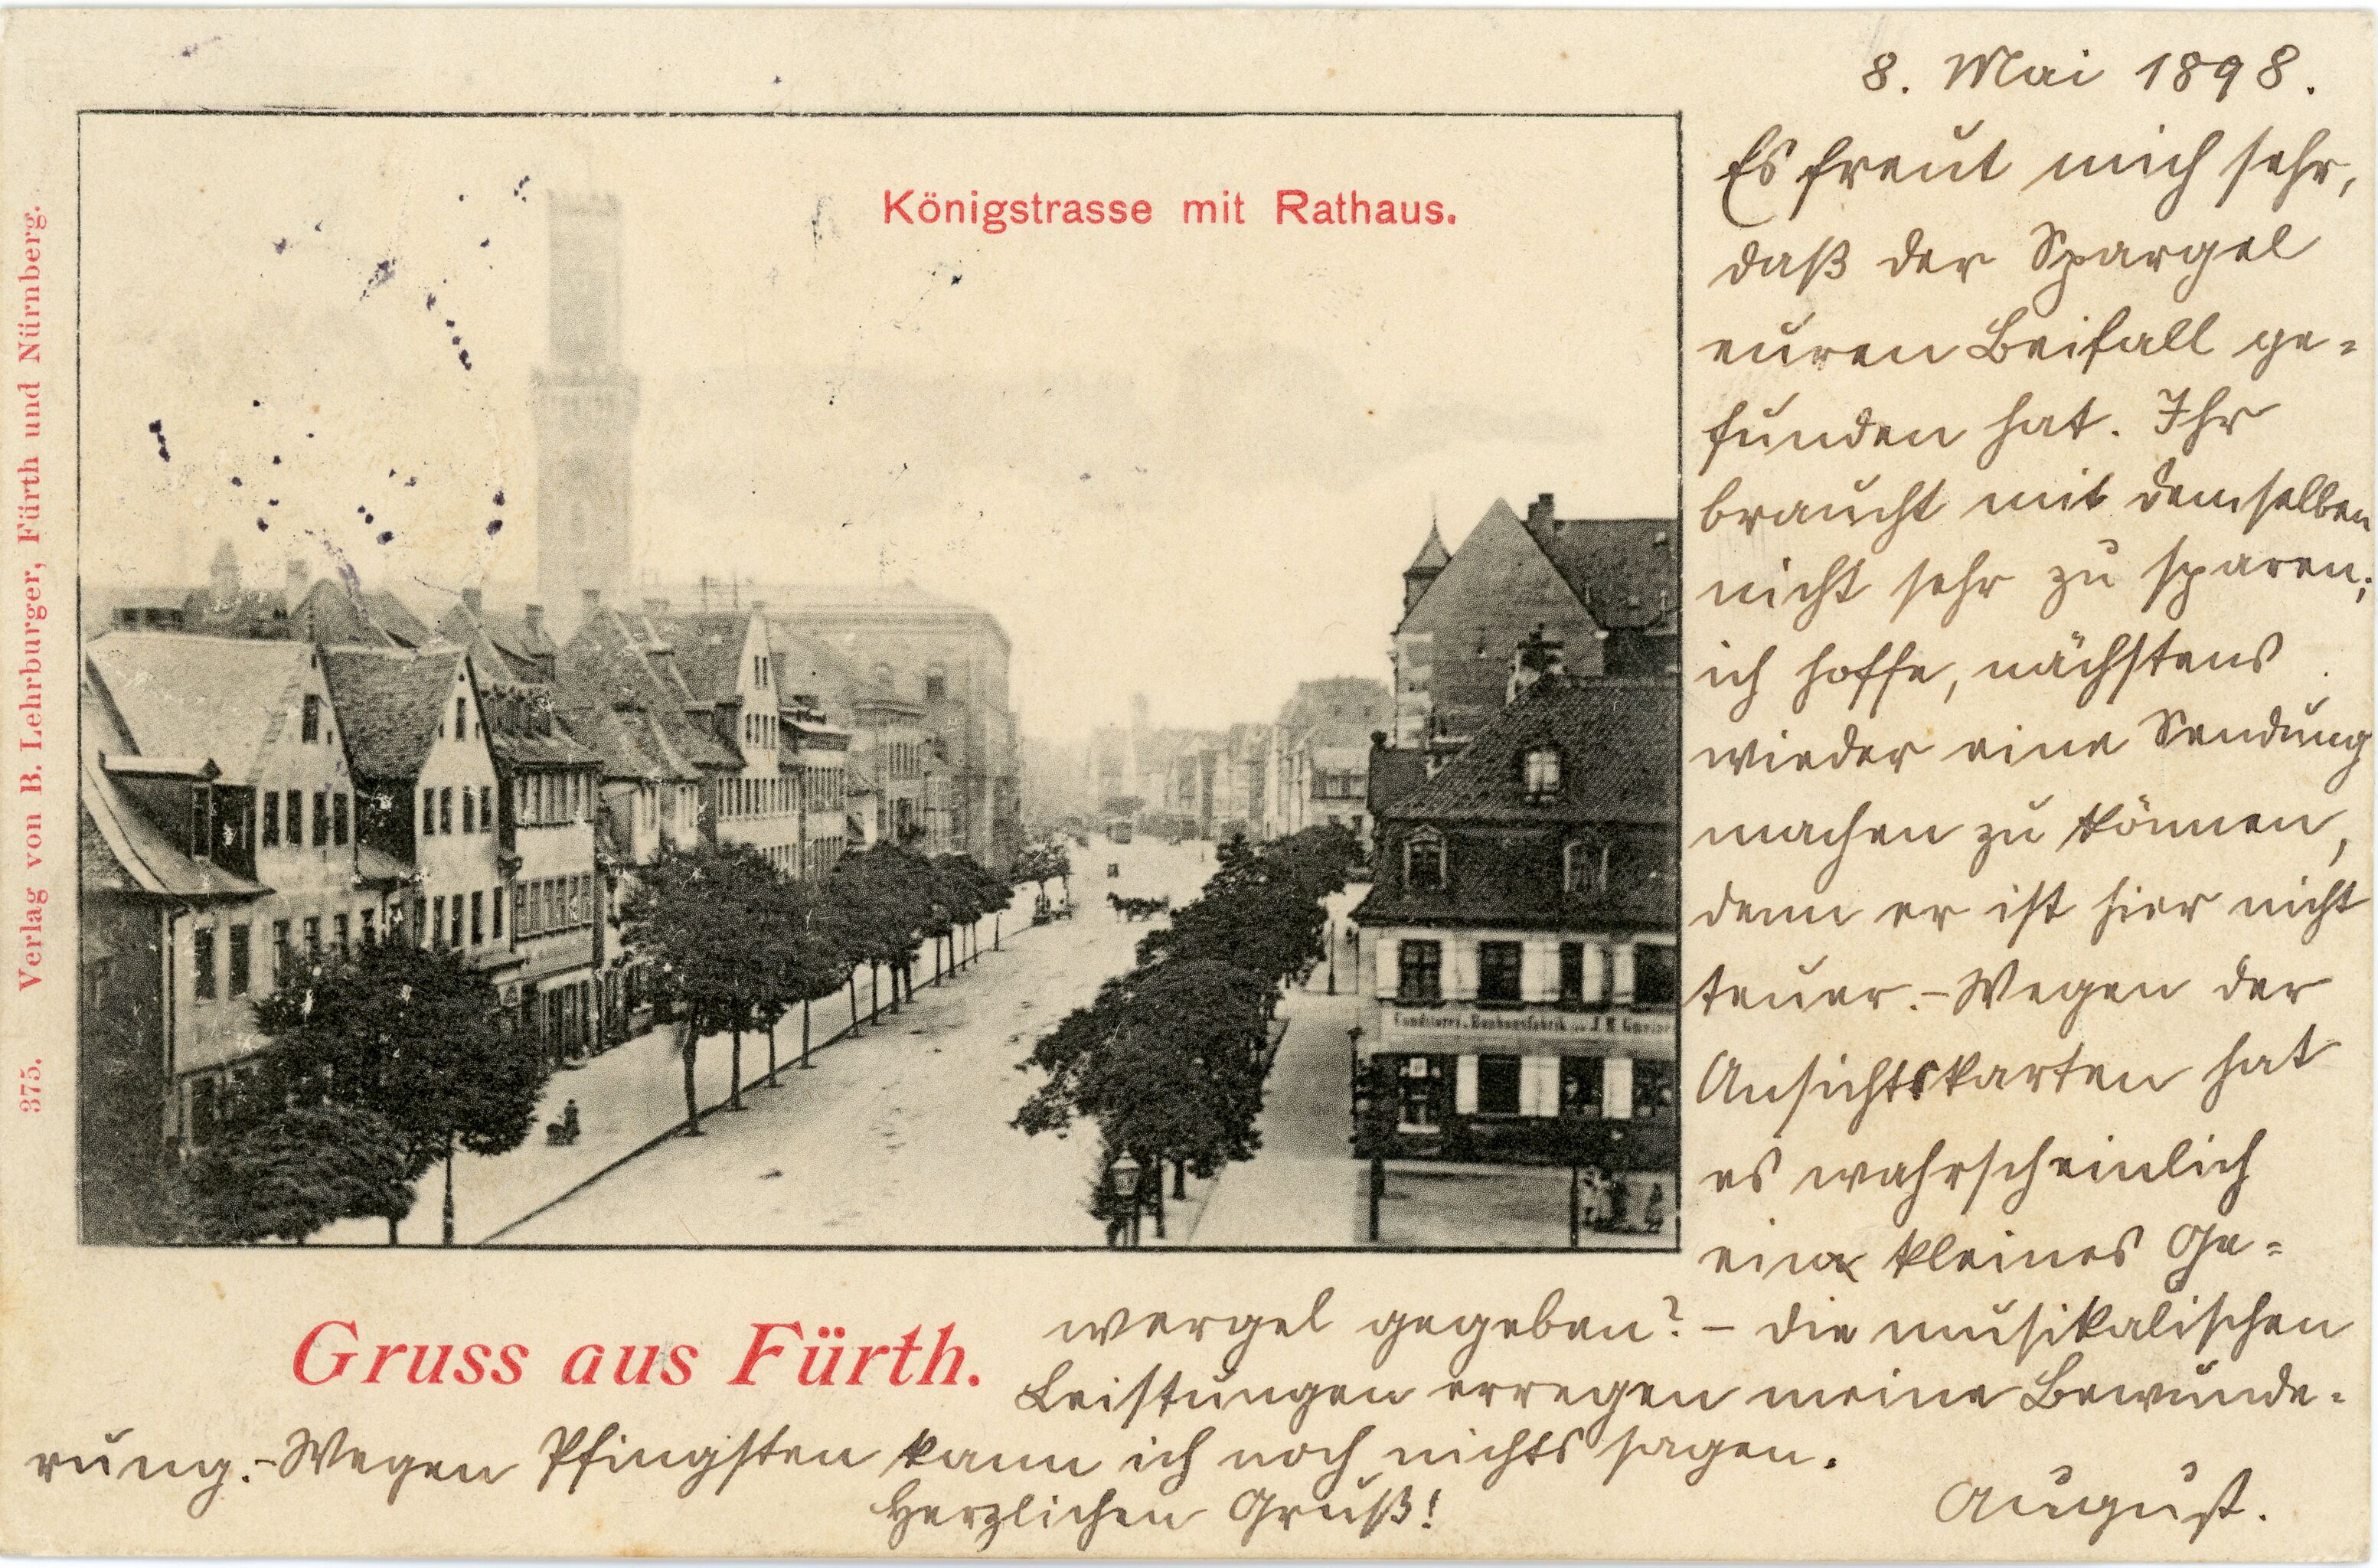 8. Mai 1898.
Königstrasse mit Rathaus.
Es freut mich sehr,
daß der Spargel
euren Beifall ge=
funden hat. Ihr
braucht mit demselben
nicht sehr zu sparen;
ich hoffe, nächstens
wieder eine Sendung
machen zu können,
denn er ist hier nicht
teuer. – Wegen der
Ansichtskarten hat
es wahrscheinlich
ein kleines Ge=
wergel gegeben? – die musikalischen
Leistungen erregen meine Bewunde=
rung. – Wegen Pfingsten kann ich noch nichts sagen.
Herzlichen Gruß!
August.
Gruss aus Fürth.
375. Verlag von B. Lehrburger, Fürth und Nürnberg.